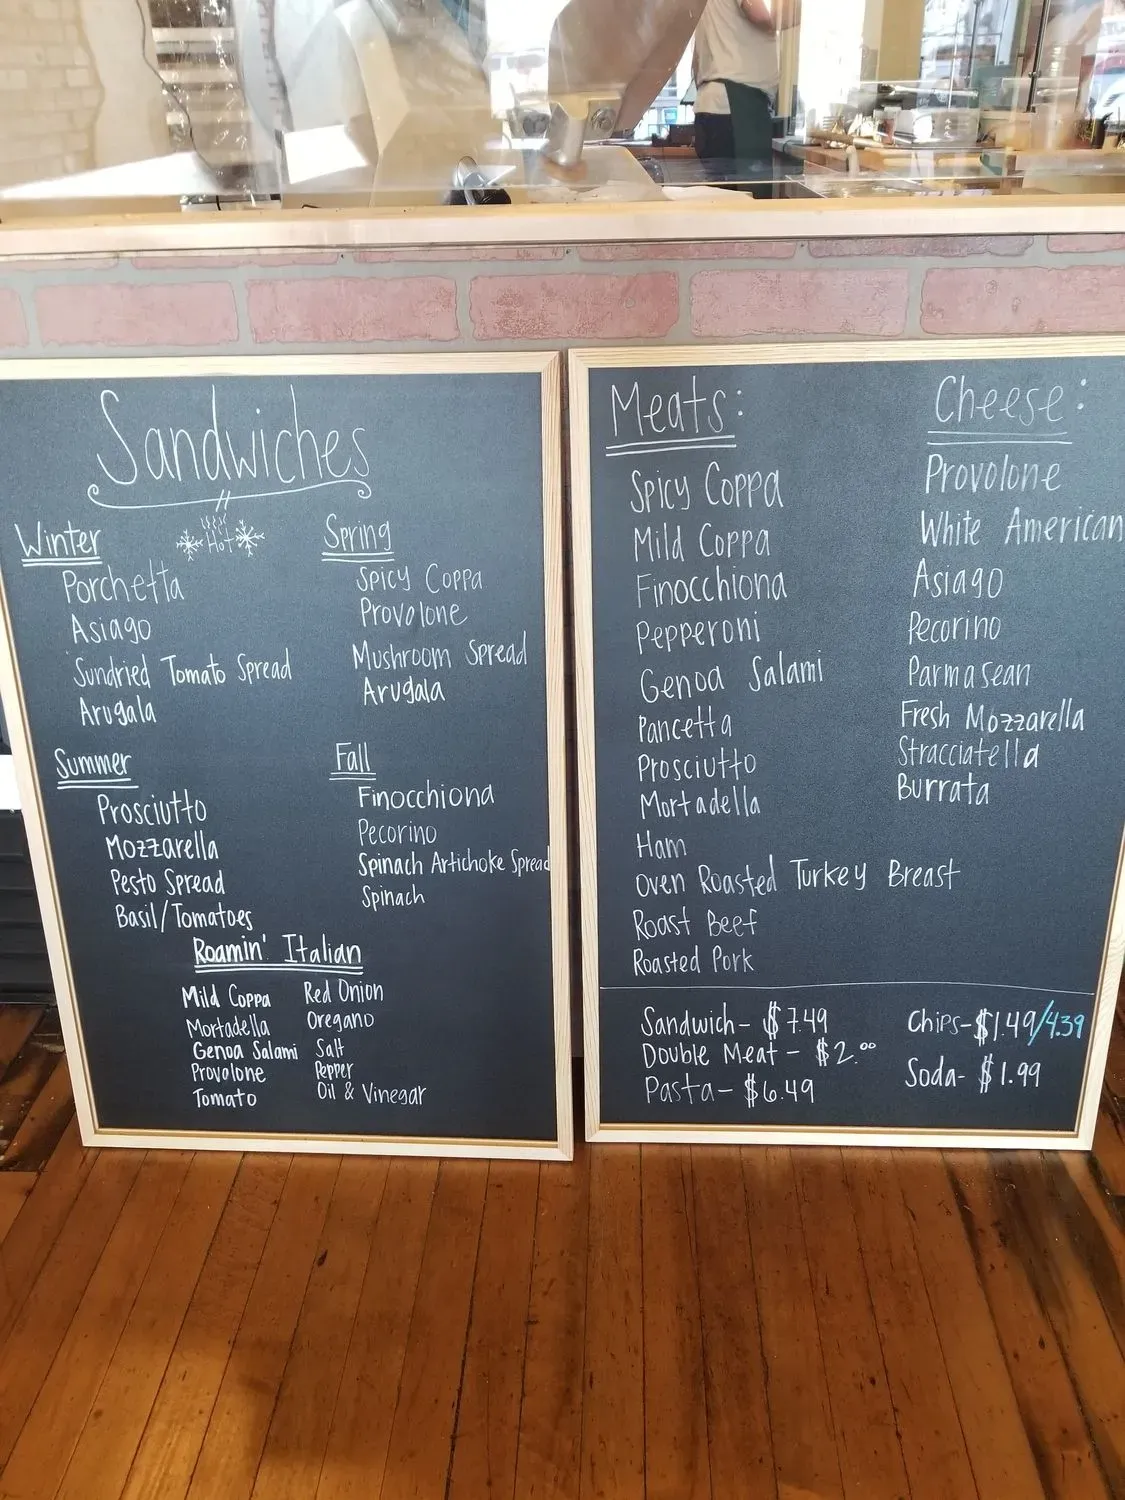 Sandwiches
Winter
Hot
Porchetta
Asiago
Sundried Tomato Spread
Arugala
Spring
Spicy Coppa
Provolone
Mushroom Spread
Arugala
Summer
Prosciutto
Mozzarella
Pesto Spread
Basil/Tomatoes
Fall
Finocchiona
Pecorino
Spinach Artichoke Spread
Spinach
Roamin' Italian
Mild Coppa
Mortadella
Genoa Salami
Provolone
Tomato
Red Onion
Oregano
Salt
Pepper
Oil & Vinegar
Meats:
Spicy Coppa
Mild Coppa
Finocchiona
Pepperoni
Genoa Salami
Pancetta
Prosciutto
Mortadella
Ham
Oven Roasted Turkey Breast
Roast Beef
Roasted Pork
Cheese:
Provolone
White American
Asiago
Pecorino
Parmasean
Fresh Mozzarella
Stracciatella
Burrata
Sandwich- $7.49
Double Meat - $2.00
Pasta- $6.49
Chips-$1.49/4.39
Soda- $1.99